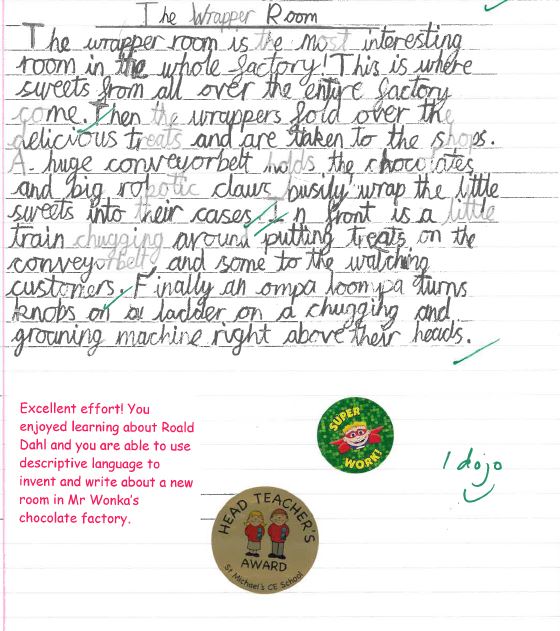 The Wrapper Room
The wrapper room is the most interesting
room in the whole factory! This is where
sweets from all over the entire factory
come. Then the wrappers fold over the
delicious treats and are taken to the shops.
A huge conveyorbelt holds the chocolates
and big robotic claws busily wrap the little
sweets into their cases. In front is a little
train chugging around putting treats on the
conveyorbelt and some to the watching
customers. Finally an ompa loompa turns
knobs on a ladder on a chugging and
groaning machine right above their heads.
Excellent effort! You
enjoyed learning about Roald
Dahl and you are able to use
descriptive language to
invent and write about a new
room in Mr Wonka's
chocolate factory.
SUPER
WORK!
1 dojo
HEAD TEACHER'S
AWARD
St Michael's CE School